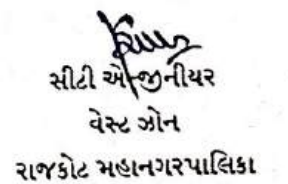 સીટી એન્જીનીયર
વેસ્ટ ઝોન
રાજકોટ મહાનગરપાલિકા